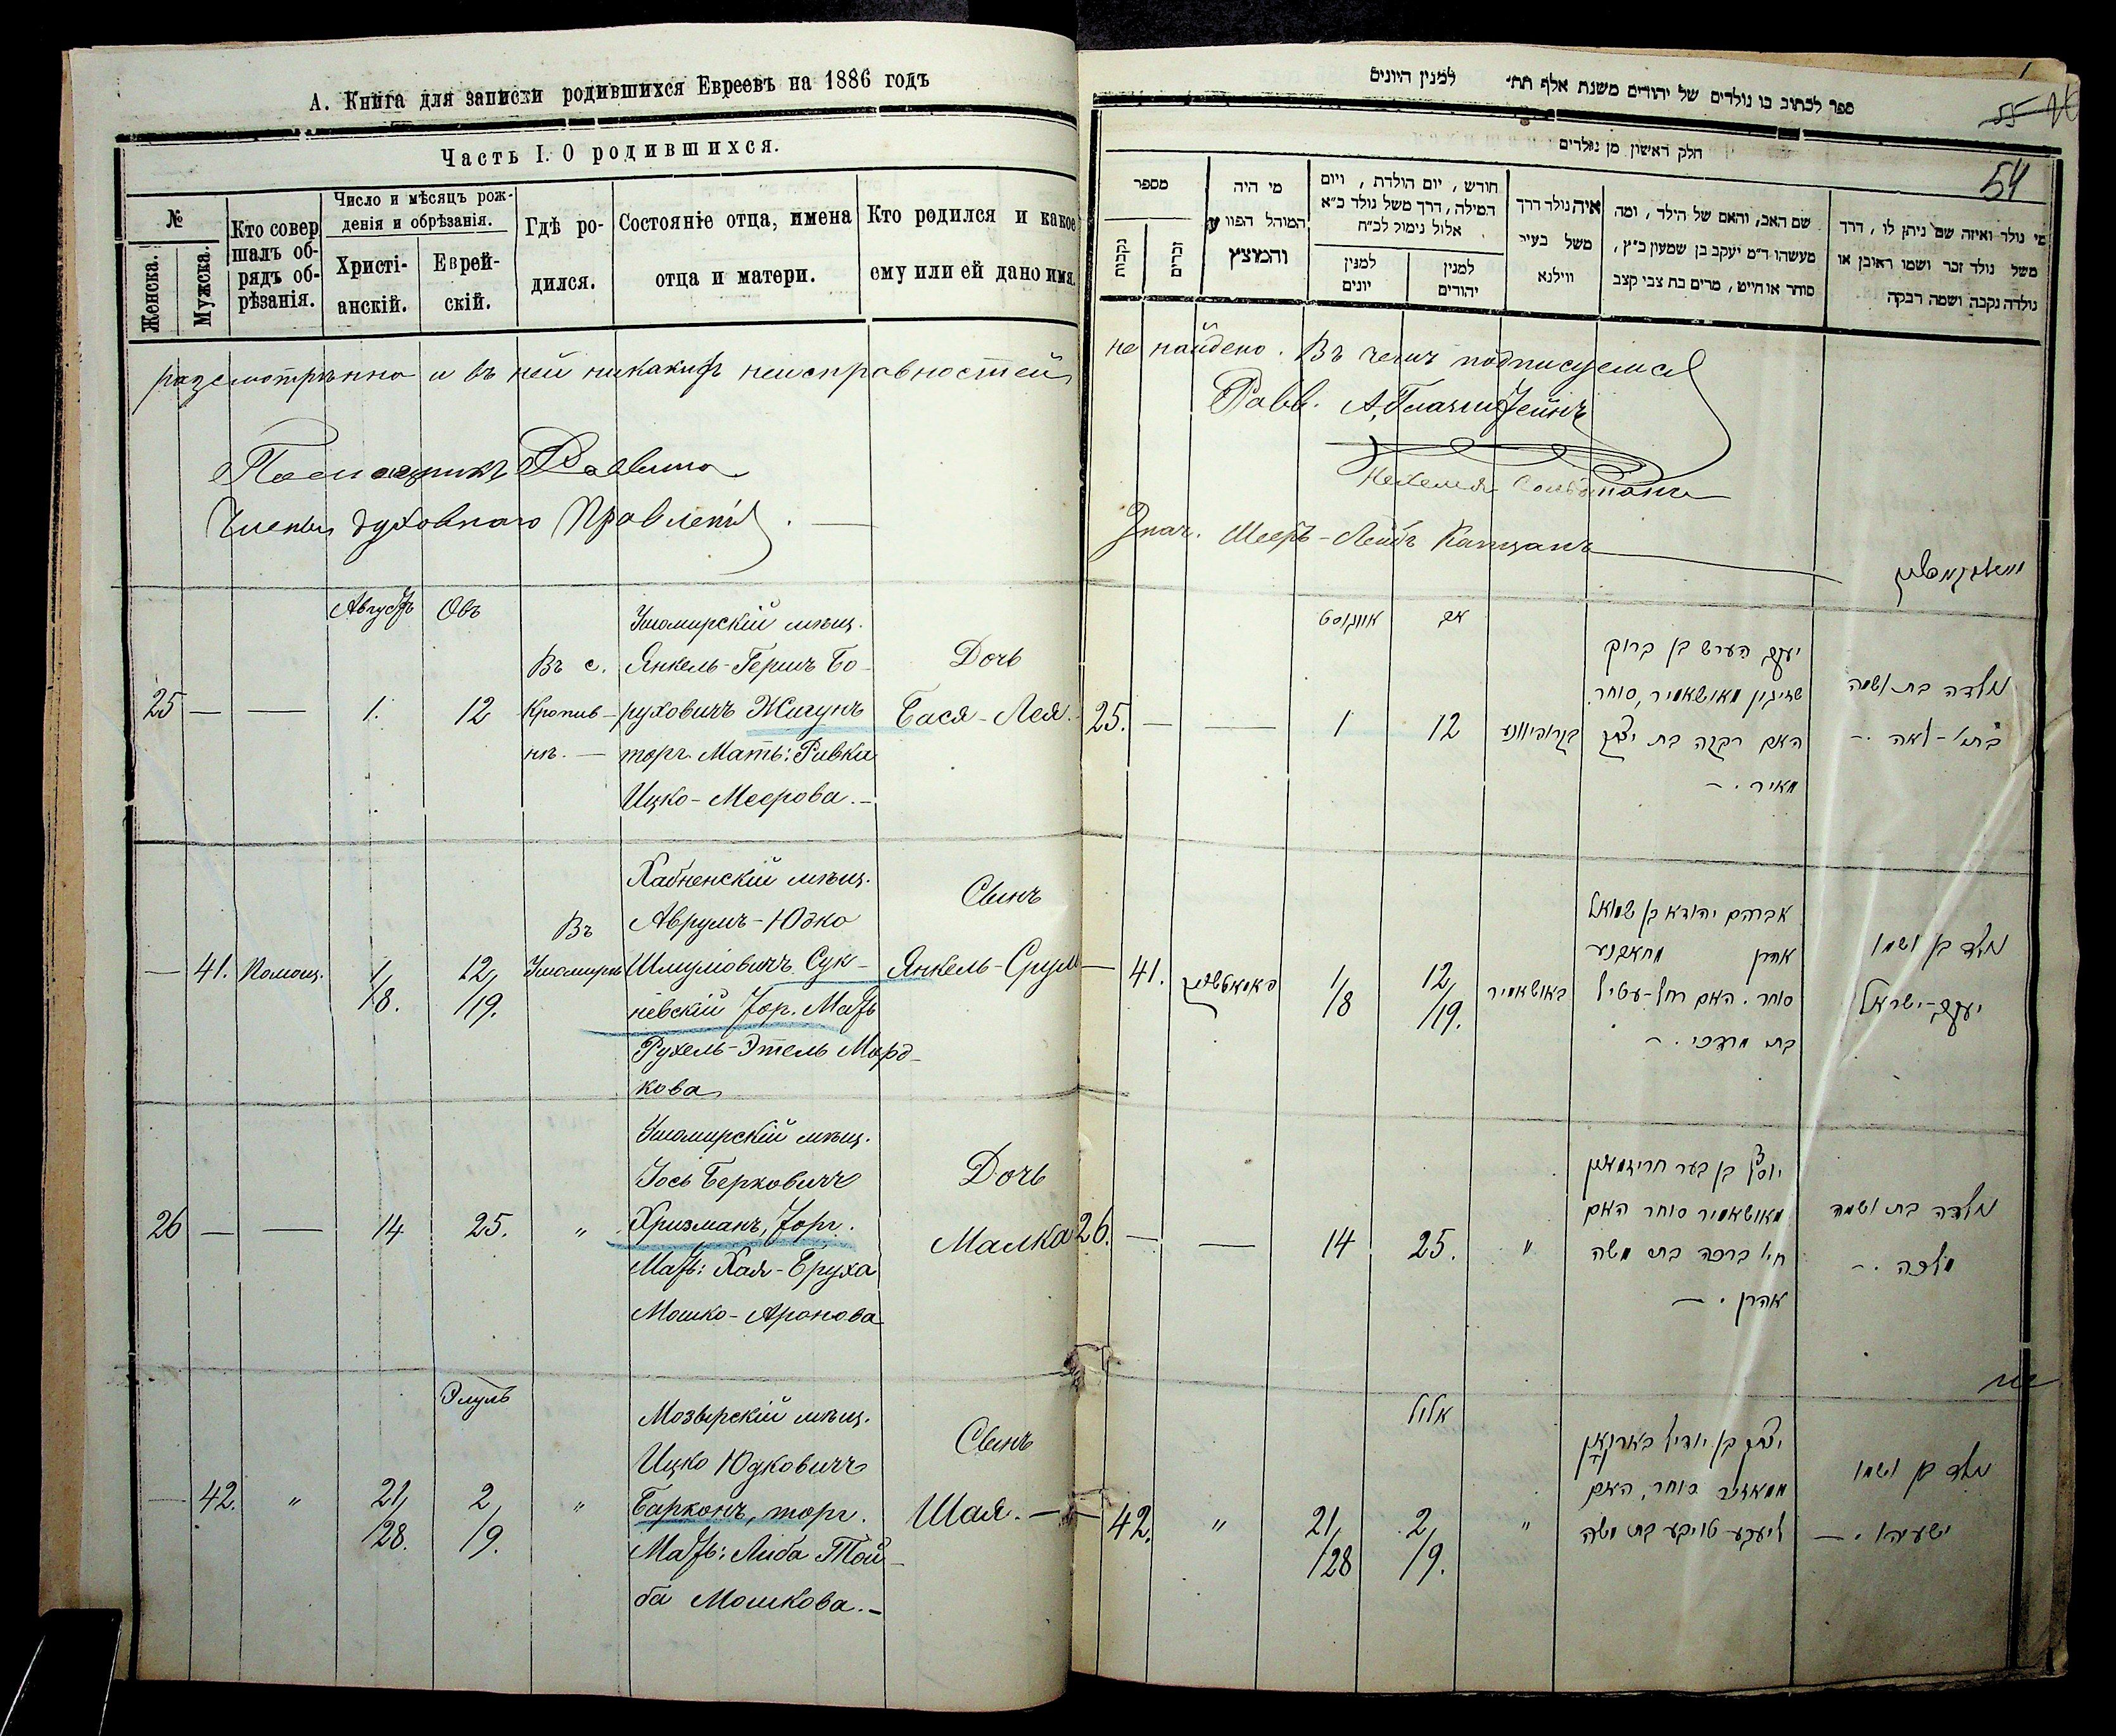 А. Книга для записки родившихся Евреевъ на 1886 годъ
Часть I. О родившихся.
№
Женска.
Мужска.
Кто совер
шалъ об-
рядъ об-
рѣзанія.
Число и мѣсяцъ рож-
денія и обрѣзанія.
Христі-
анскій.
Еврей-
скій.
Гдѣ ро-
дился.
Состояніе отца, имена
отца и матери.
Кто родился и какое
ему или ей дано имя.
разсмотрѣнно и въ ней никакихъ неисправностей
Помощникъ Раввина
Члены духовнаго Правленія. —
Августъ
Овъ
25 — — 1. 12
Въ с.
Кропив-
нѣ. —
Ушомирскій мѣщ.
Янкель-Гершъ Бо-
руховичъ Жигунъ
торг. Мать: Ривка
Ицко-Меерова. —
Дочь
Бася-Лея.
— 41. Помощ. 1/8. 12/19.
Въ
Ушомирѣ
Хабненскій мѣщ.
Аврумъ-Юдко
Шмуліовичъ Сук-
невскій тор. Мать
Рухель-Этель Морд-
кова
Сынъ
Янкель-Срул
26 — — 14 25. "
Ушомирскій мѣщ.
Іось Берковичъ
Хризманъ, торг.
Мать: Хая-Бруха
Мошко-Аронова
Дочь
Малка
Элулъ
— 42. " 21/28. 2/9. "
Мозырскій мѣщ.
Ицко Юдковичъ
Барконъ, торг.
Мать: Либа Той-
ба Мошкова. —
Сынъ
Шая. —
ספר לכתוב בו נולדים של יהודים משנת אלף תת׳ למנין היונים
55
54
חלק ראשון מן נולדים
מספר
נקבות
זכרים
מי היה
המוהל הפורע
והמוצץ
חודש, יום הולדת, ויום
המילה, דרך משל נולד כ״א
אלול נימול לכ״ח
למנין
יונים
למנין
יהודים
איה נולד דרך
משל בעיר
ווילנא
שם האב, והאם של הילד, ומה
מעשהו ד״מ יעקב בן שמעון כ״ץ,
סוחר או חייט, מרים בת צבי קצב
מי נולד ואיזה שם ניתן לו, דרך
משל נולד זכר ושמו ראובן או
נולדה נקבה ושמה רבקה
не найдено. Въ чемъ подписуемся
Равв. А.
Знач. Мееръ-Лейбъ Капцанъ
אויגוסט
אב
25. — — 1 12
יעקב הערש בן ברוך
מאושאמיר, סוחר.
האם רבקה בת יצחק
מאיר. —
נולדה בת ושמה
בתי׳-לאה. —
— 41. 1/8 12/19.
באושאמיר
אברהם יהודא בן שמואל
אהרן מחאבנע
סוחר. האם רחל-עטיל
בת מרדכי. —
נולד בן ושמו
יעקב-ישראל
26. — — 14 25. "
יוסף בן בער חריזמאן
מאושאמיר סוחר האם
חי׳ ברכה בת משה
אהרן. —
נולדה בת ושמה
מלכה. —
אלול
— 42. " 21/28 2/9. "
יצחק בן יודיל בארקאן
סוחר, האם
ליעבע טויבע בת משה
נולד בן ושמו
ישעיהו. —